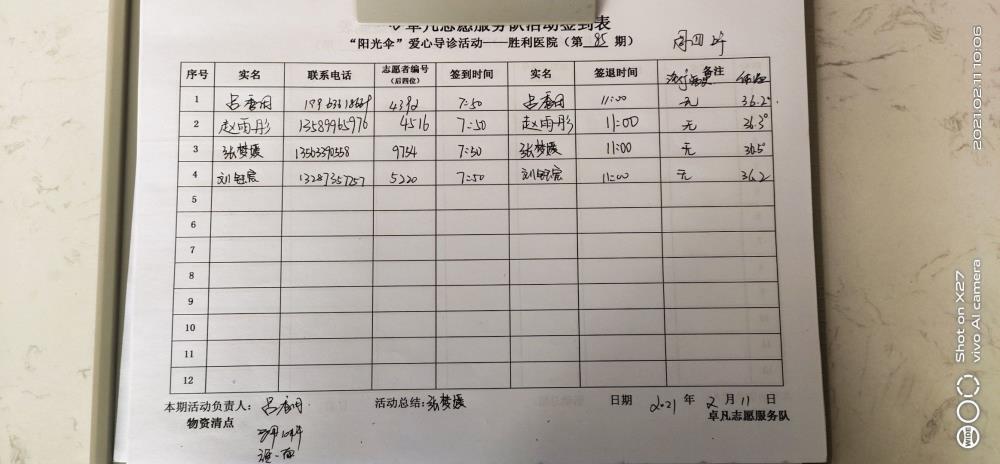 卓凡志愿服务队活动签到表
“阳光伞”爱心导诊活动——胜利医院（第 85 期） 周四上午
序号 实名 联系电话 志愿者编号（后四位） 签到时间 实名 签退时间 备注 体温
1 7:50 11:00 无 36.2°
2 赵雨彤 13589965976 4516 7:50 赵雨彤 11:00 无 36.3°
3 张梦媛 13563390558 9754 7:50 张梦媛 11:00 无 36.5°
4 刘钰宸 13287357757 5220 7:50 刘钰宸 11:00 无 36.2
5
6
7
8
9
10
11
12
本期活动负责人： 活动总结：张梦媛 日期 2021 年 2 月 11 日
物资清点 卓凡志愿服务队
2021.02.11 10:06
Shot on X27
vivo AI camera